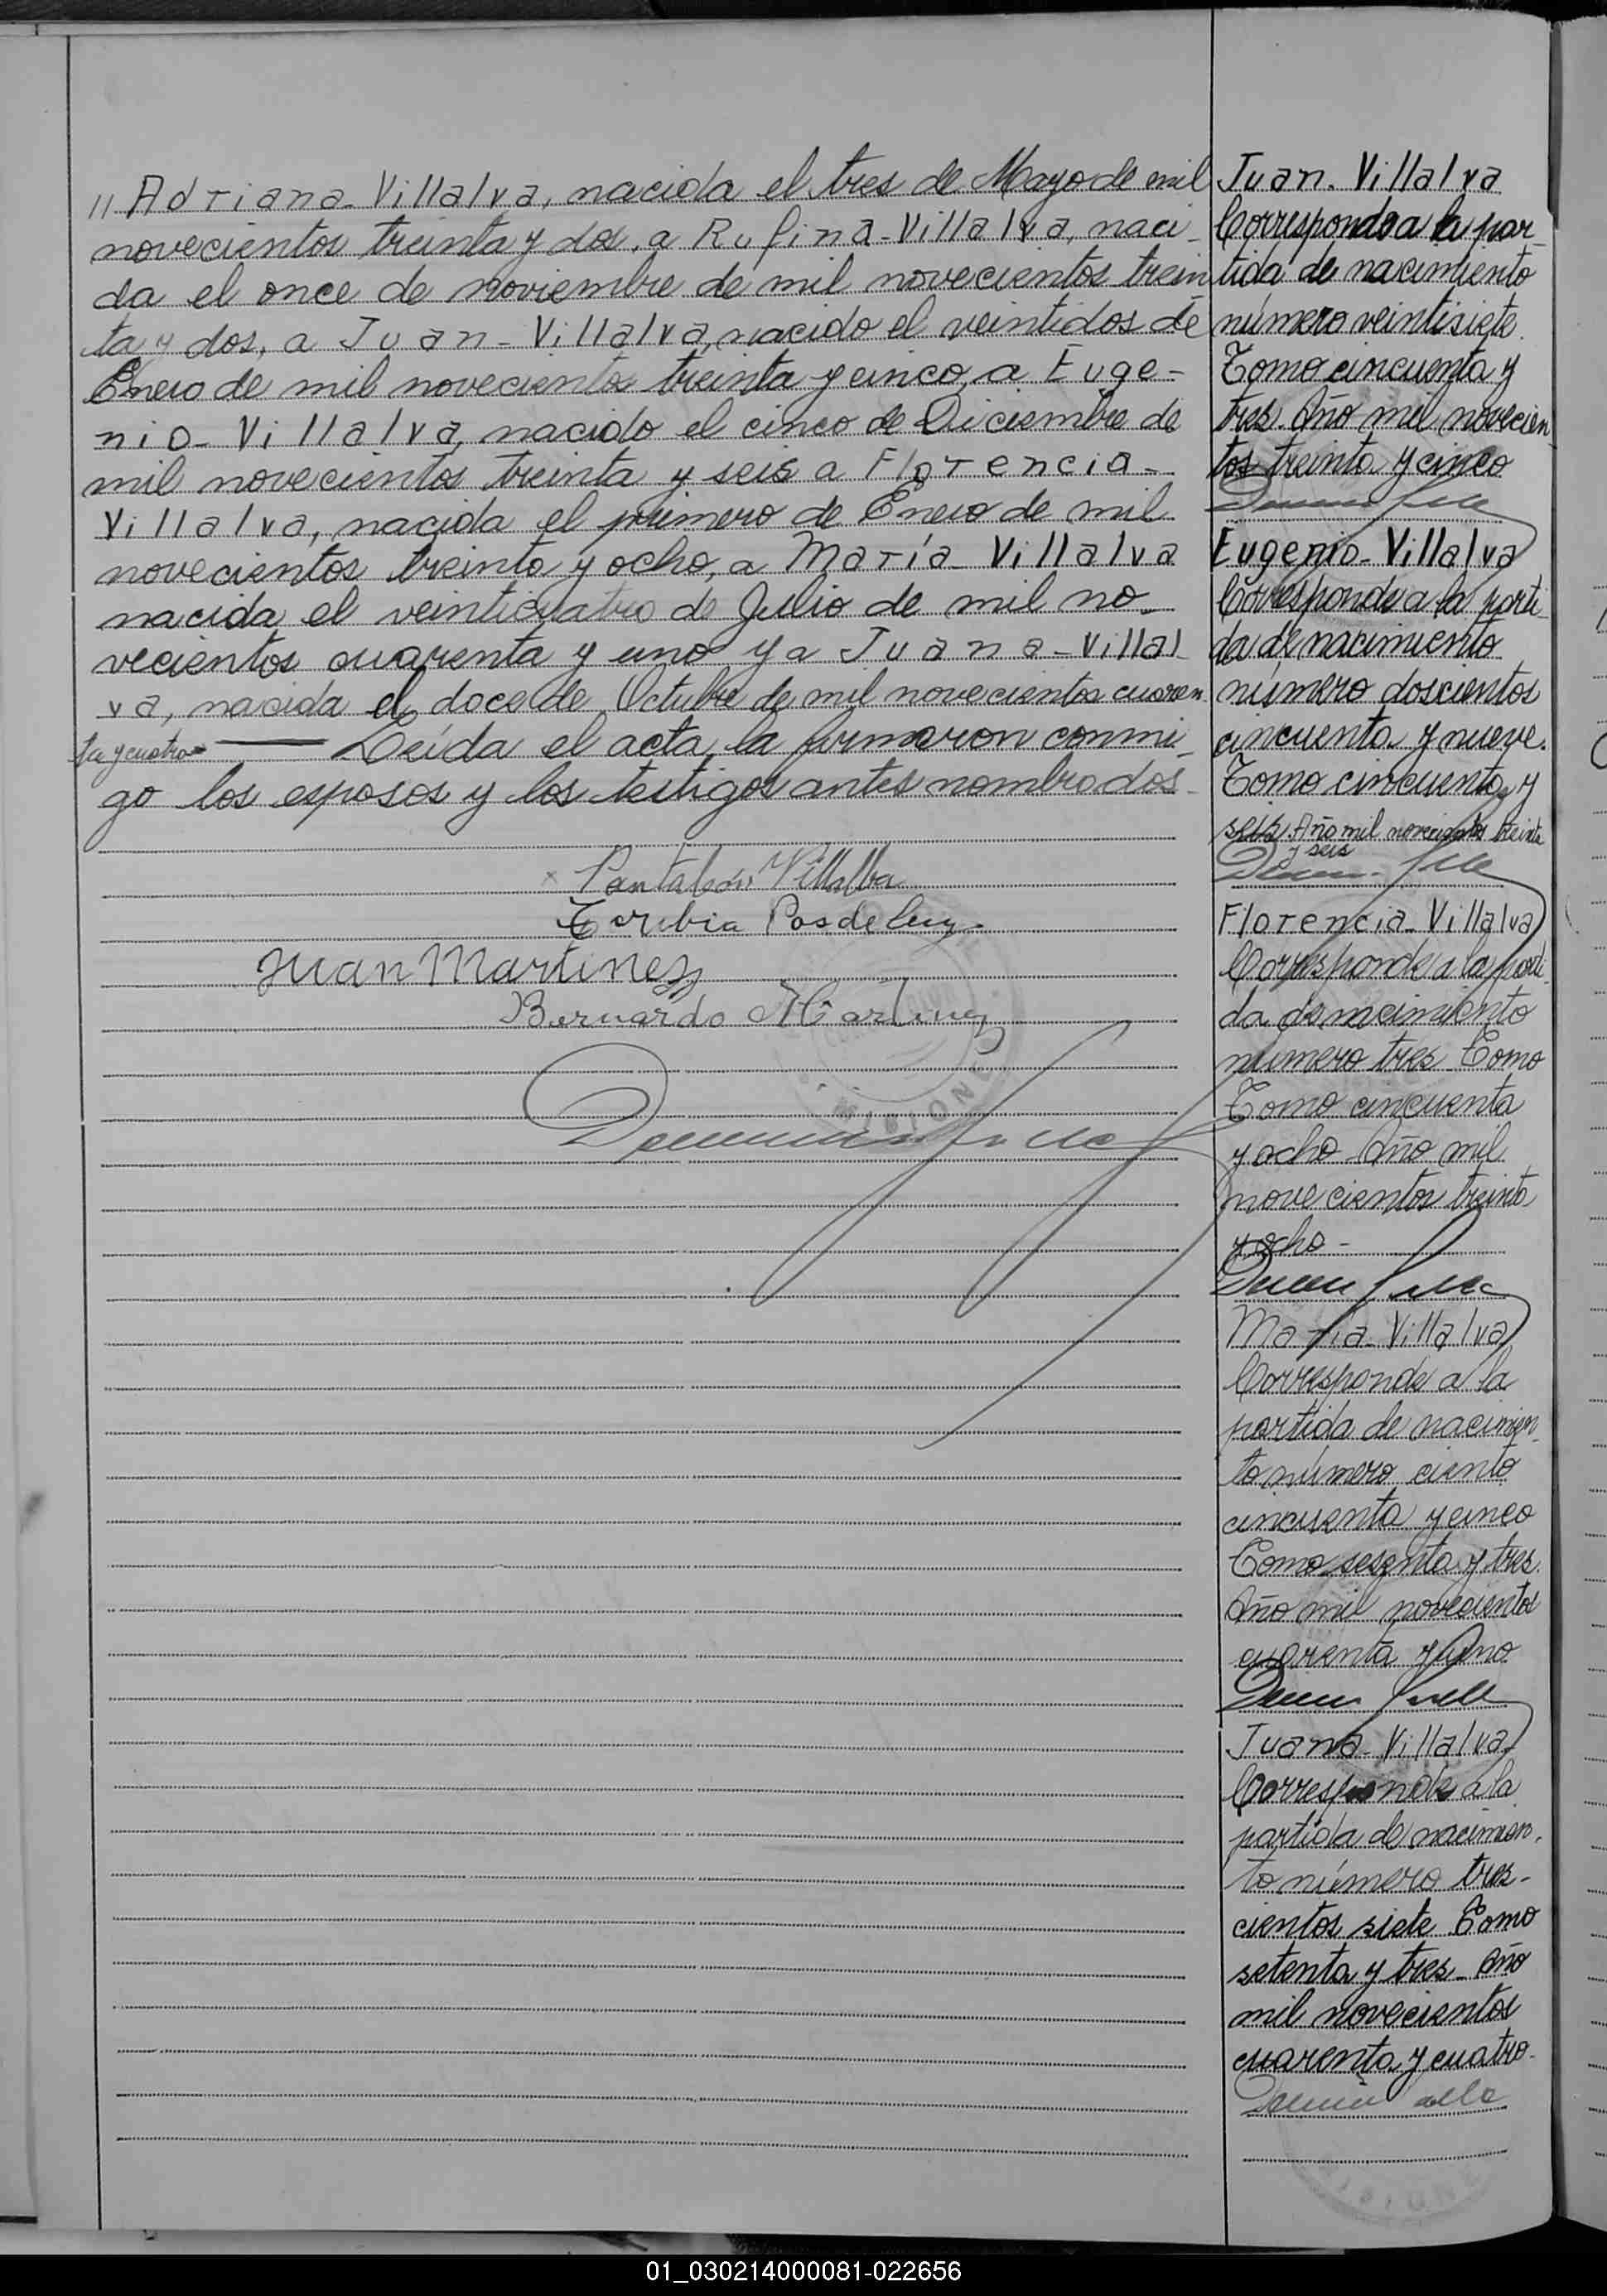 " Adriana - Villalva, nacida el tres de Mayo de mil
novecientos treinta y dos, a Rufina - Villalva, naci-
da el once de noviembre de mil novecientos trein
ta y dos, a Juan - Villalva, nacido el veintidos de
Enero de mil novecientos treinta y cinco, a Euge-
nio - Villalva, nacido el cinco de Diciembre de
mil novecientos treinta y seis a Florencia -
Villalva, nacida el primero de Enero de mil
novecientos treinta y ocho, a María - Villalva
nacida el veinticuatro de Julio de mil no-
vecientos cuarenta y uno y a Juana - Villal-
va, nacida el doce de Octubre de mil novecientos cuaren
ta y cuatro — Leída el acta, la firmaron conmi-
go los esposos y los testigos antes nombrados -
x Pantaleón Villalba
Toribia Posdeley
Juan Martinez
Bernardo Martinez
MISIONES
Juan - Villalva
Corresponde a la par-
tida de nacimiento
número veintisiete.
Tomo cincuenta y
tres. Año mil novecien
tos treinta y cinco
Eugenio - Villalva
Corresponde a la parti-
da de nacimiento
número doscientos
cincuenta y nueve.
Tomo cincuenta y
seis. Año mil novecientos treinta
y seis
Florencia - Villalva
Corresponde a la parti-
da de nacimiento
número tres Tomo
Tomo cincuenta
y ocho - Año mil
novecientos treinta
y ocho -
María - Villalva
Corresponde a la
partida de nacimien-
to número ciento
cincuenta y cinco
Tomo sesenta y tres.
Año mil novecientos
cuarenta y uno
Juana - Villalva
Corresponde a la
partida de nacimien-
to número tres-
cientos siete Tomo
setenta y tres - Año
mil novecientos
cuarenta y cuatro -
01_030214000081-022656